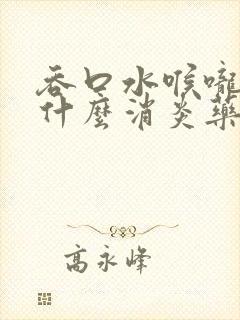 吞口水喉嚨
什麼消炎藥
高永峰